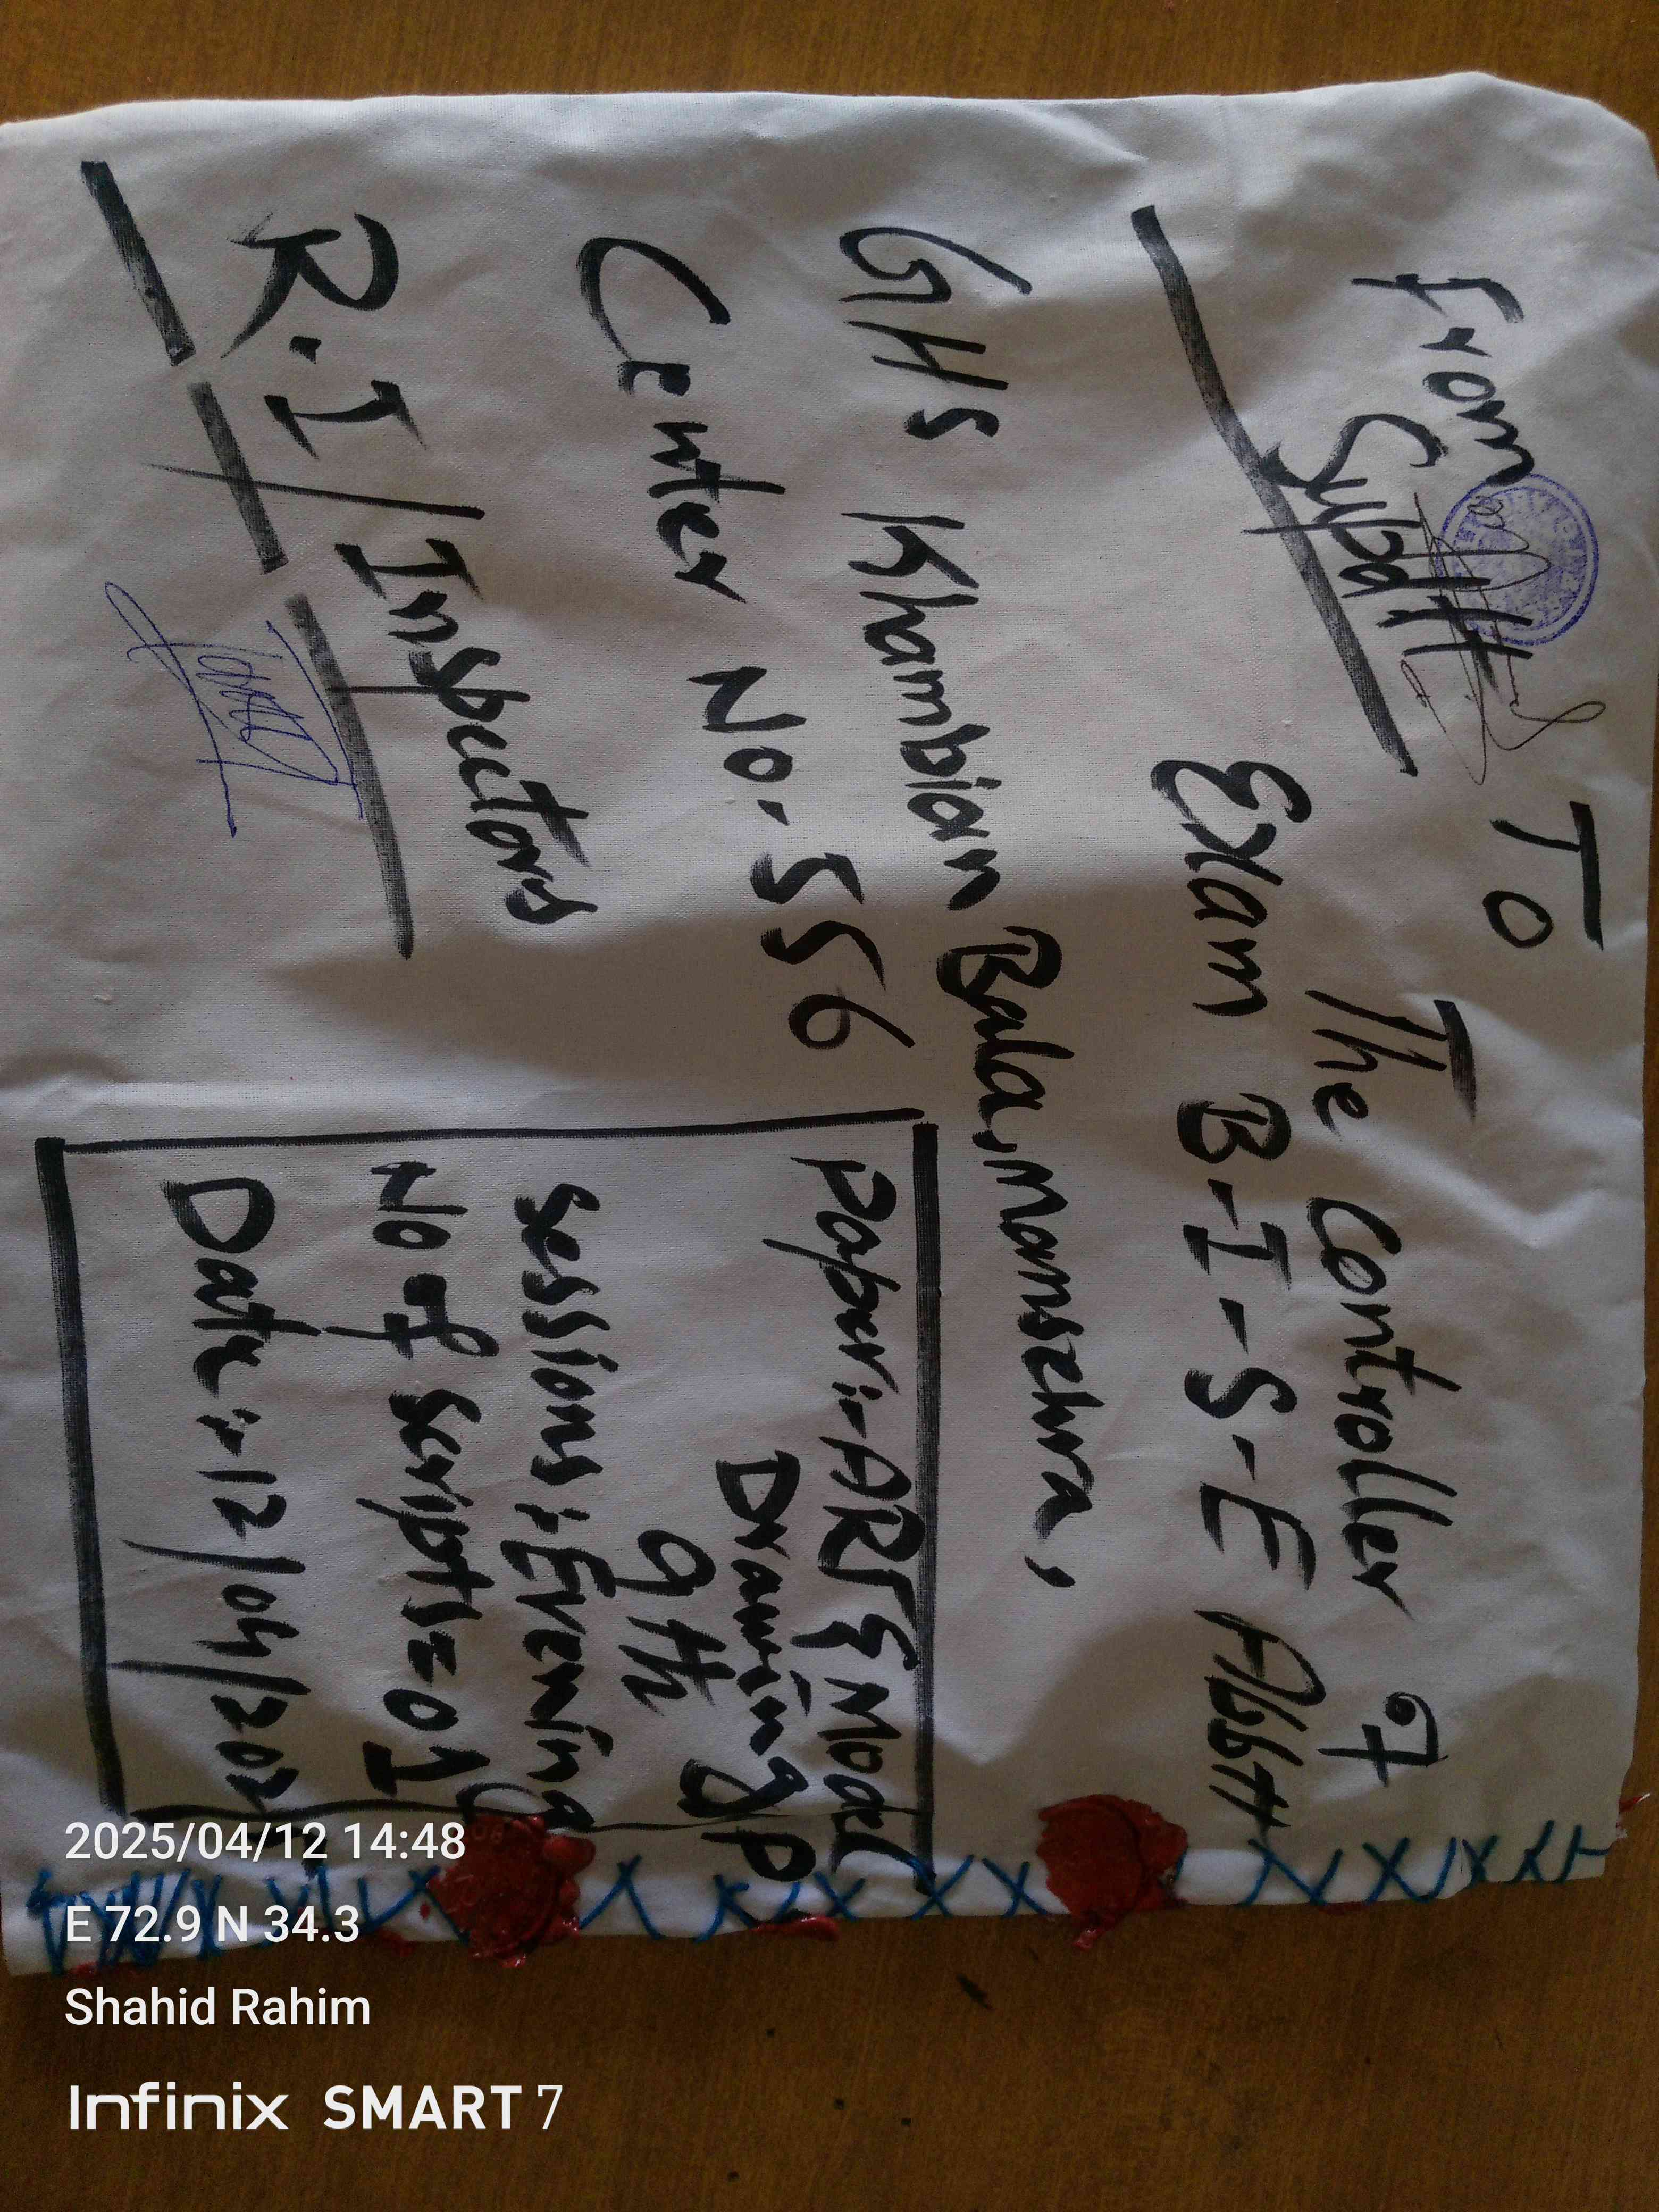 TO
The Controller of
Exam B-I-S-E Abbtt
From
Supdtt
GHS Khambian Bala, mansehra,
Center No. 556
R.I/Inspectors
Paper:- ART & Model
Drawing P
9th
sessions: Evening
No of scripts= 01
Date:- 12/04/202
2025/04/12 14:48
E 72.9 N 34.3
Shahid Rahim
Infinix SMART 7